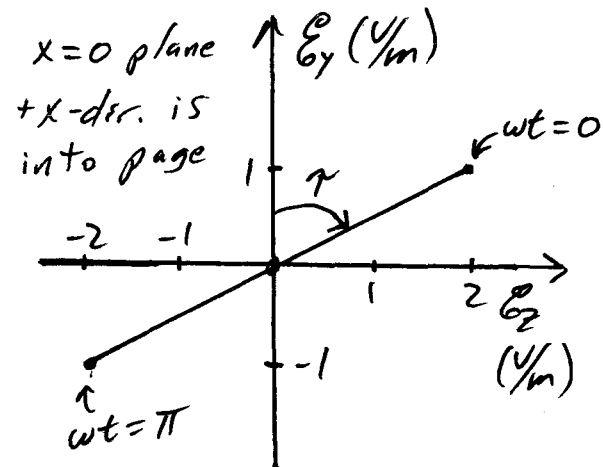 x=0 plane
+x-dir. is
into page
ℰy (V/m)
ωt=0
1
τ
-2
-1
1
2
ℰz
(V/m)
-1
ωt=π